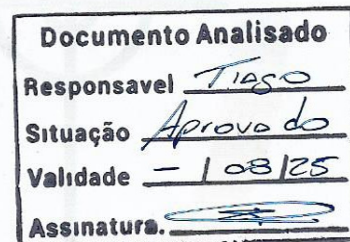 Documento Analisado
Responsavel Tiago
Situação Aprovado
Validade - / 08/25
Assinatura.